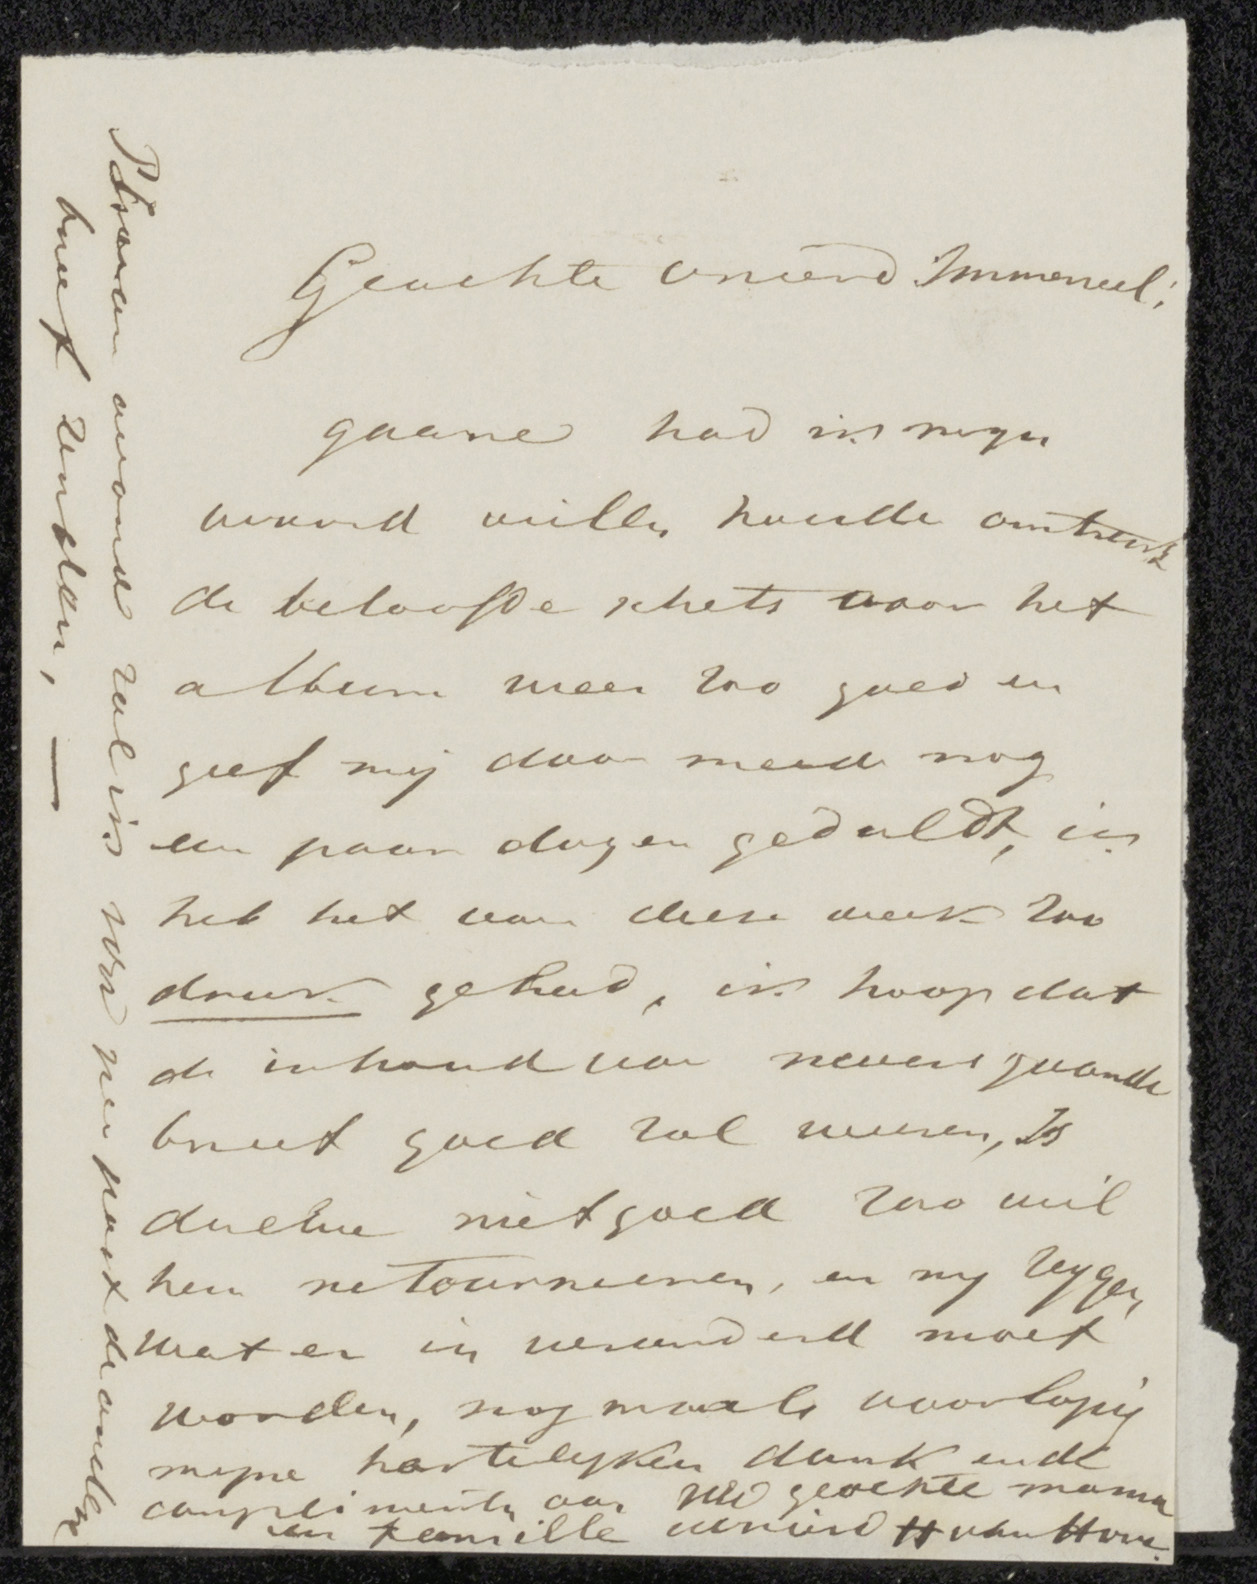 Geachte vriend Immerzeel;
gaarne had ik mijn
woord willen houden omtrent
de beloofde schets voor het
album wees zoo goed en
geef mij daar meede nog
een paar dagen geduldt, ik
heb het van deese week zoo
druk gehad, ik hoop dat
de inhoud van nevensgaande
brief goed zal weesen, Is
deselve niet goed zoo wil
hem retourneeren, en my zeggen,
wat er in veranderd moet
worden, nogmaals voorlopig
mijne hartelyken dank en de
complimenten aan UW geachte mama
en familie uw vriend H van Hove.
PS morgen avond zal ik per post de andere
brief zenden, —